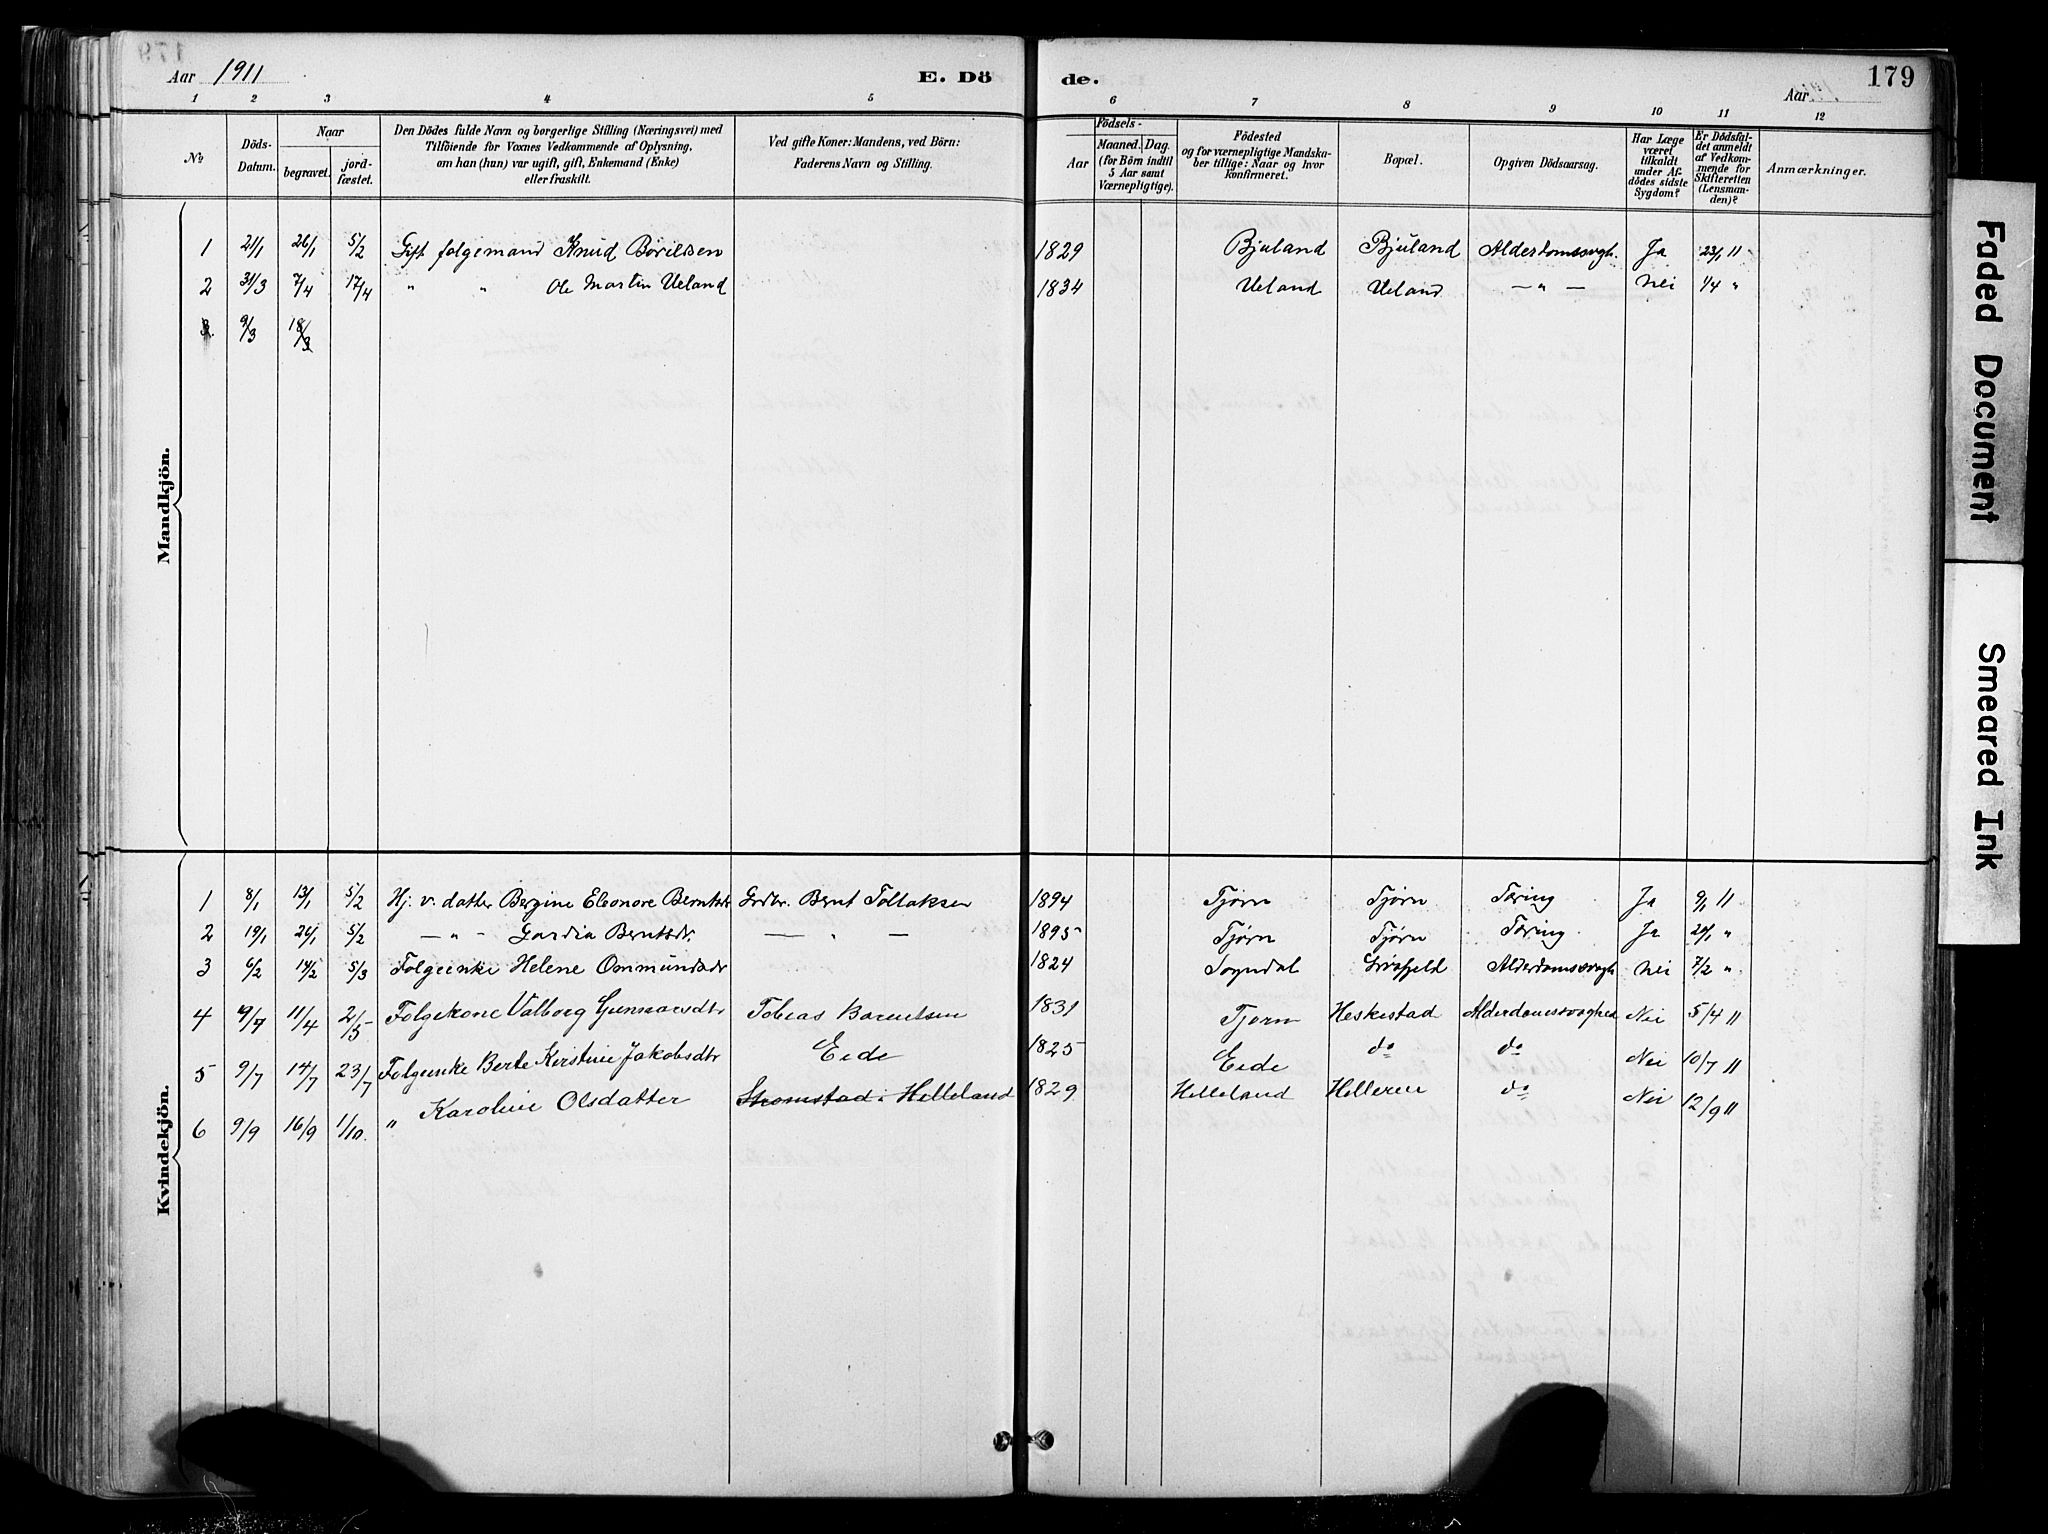 179
Aar 1911
E. Dö
de.
Aar
179
1 2 3 4 5 6 7 8 9 10 11 12
No
Döds-
Datum.
Naar
begravet.
jord-
fæstet.
Den Dödes fulde Navn og borgerlige Stilling (Næringsvei) med
Tilföiende for Voxnes Vedkommende af Oplysning,
om han (hun) var ugift, gift, Enkemand (Enke)
eller fraskilt.
Ved gifte Koner: Mandens, ved Börn:
Faderens Navn og Stilling.
Födsels-
Aar
Maaned. Dag.
(for Börn indtil
5 Aar samt
Værnepligtige).
Födested
og for værnepligtige Mandska-
ber tillige: Naar og hvor
konfirmeret.
Bopæl.
Opgiven Dödsaarsag.
Har Læge
været
tilkaldt
under Af-
dödes sidste
Sygdom?
Er Dödsfal-
det anmeldt
af Vedkom-
mende for
Skifteretten
(Lensman-
den)?
Anmærkninger.
Mandkjön.
1 21/1 26/1 5/2 Gift folgemand Knud Børildsen 1829 Bjuland Bjuland Alderdomssvagh. Ja 23/1 11
2 31/3 7/4 17/4 " " Ole Martin Ueland 1834 Ueland Ueland — " — Nei 1/4 "
3. 9/3 18/3
Kvindekjön.
1 8/1 13/1 5/2 Hj. v. datter Bergine Eleonore Berntsdr Grdbr. Bernt Tollaksen 1894 Tjørn Tjørn Tæring Ja 9/1 11
2 19/1 26/1 5/2 — " — Gardia Berntsdr. — " — 1895 Tjørn Tjørn Tæring Ja 20/1 "
3 6/2 14/2 5/3 Folgeenke Helene Ommundsdr 1824 Sogndal Alderdomssvagh Nei 7/2 "
4 11/4 2/5 Folgekone Valborg Gunnarsdtr Tobias Berentsen 1831 Tjørn Heskestad Alderdomssvaghed Nei 5/4 11
5 9/7 14/7 23/7 Folgeenke Berte Kirstine Jakobsdtr Eide 1825 Eide do do Nei 10/7 11
6 9/9 16/9 1/10. " Karoline Olsdatter Stromstad i Helleland 1829 Helleland Helleren do Nei 12/9 11
Faded Document
Smeared Ink